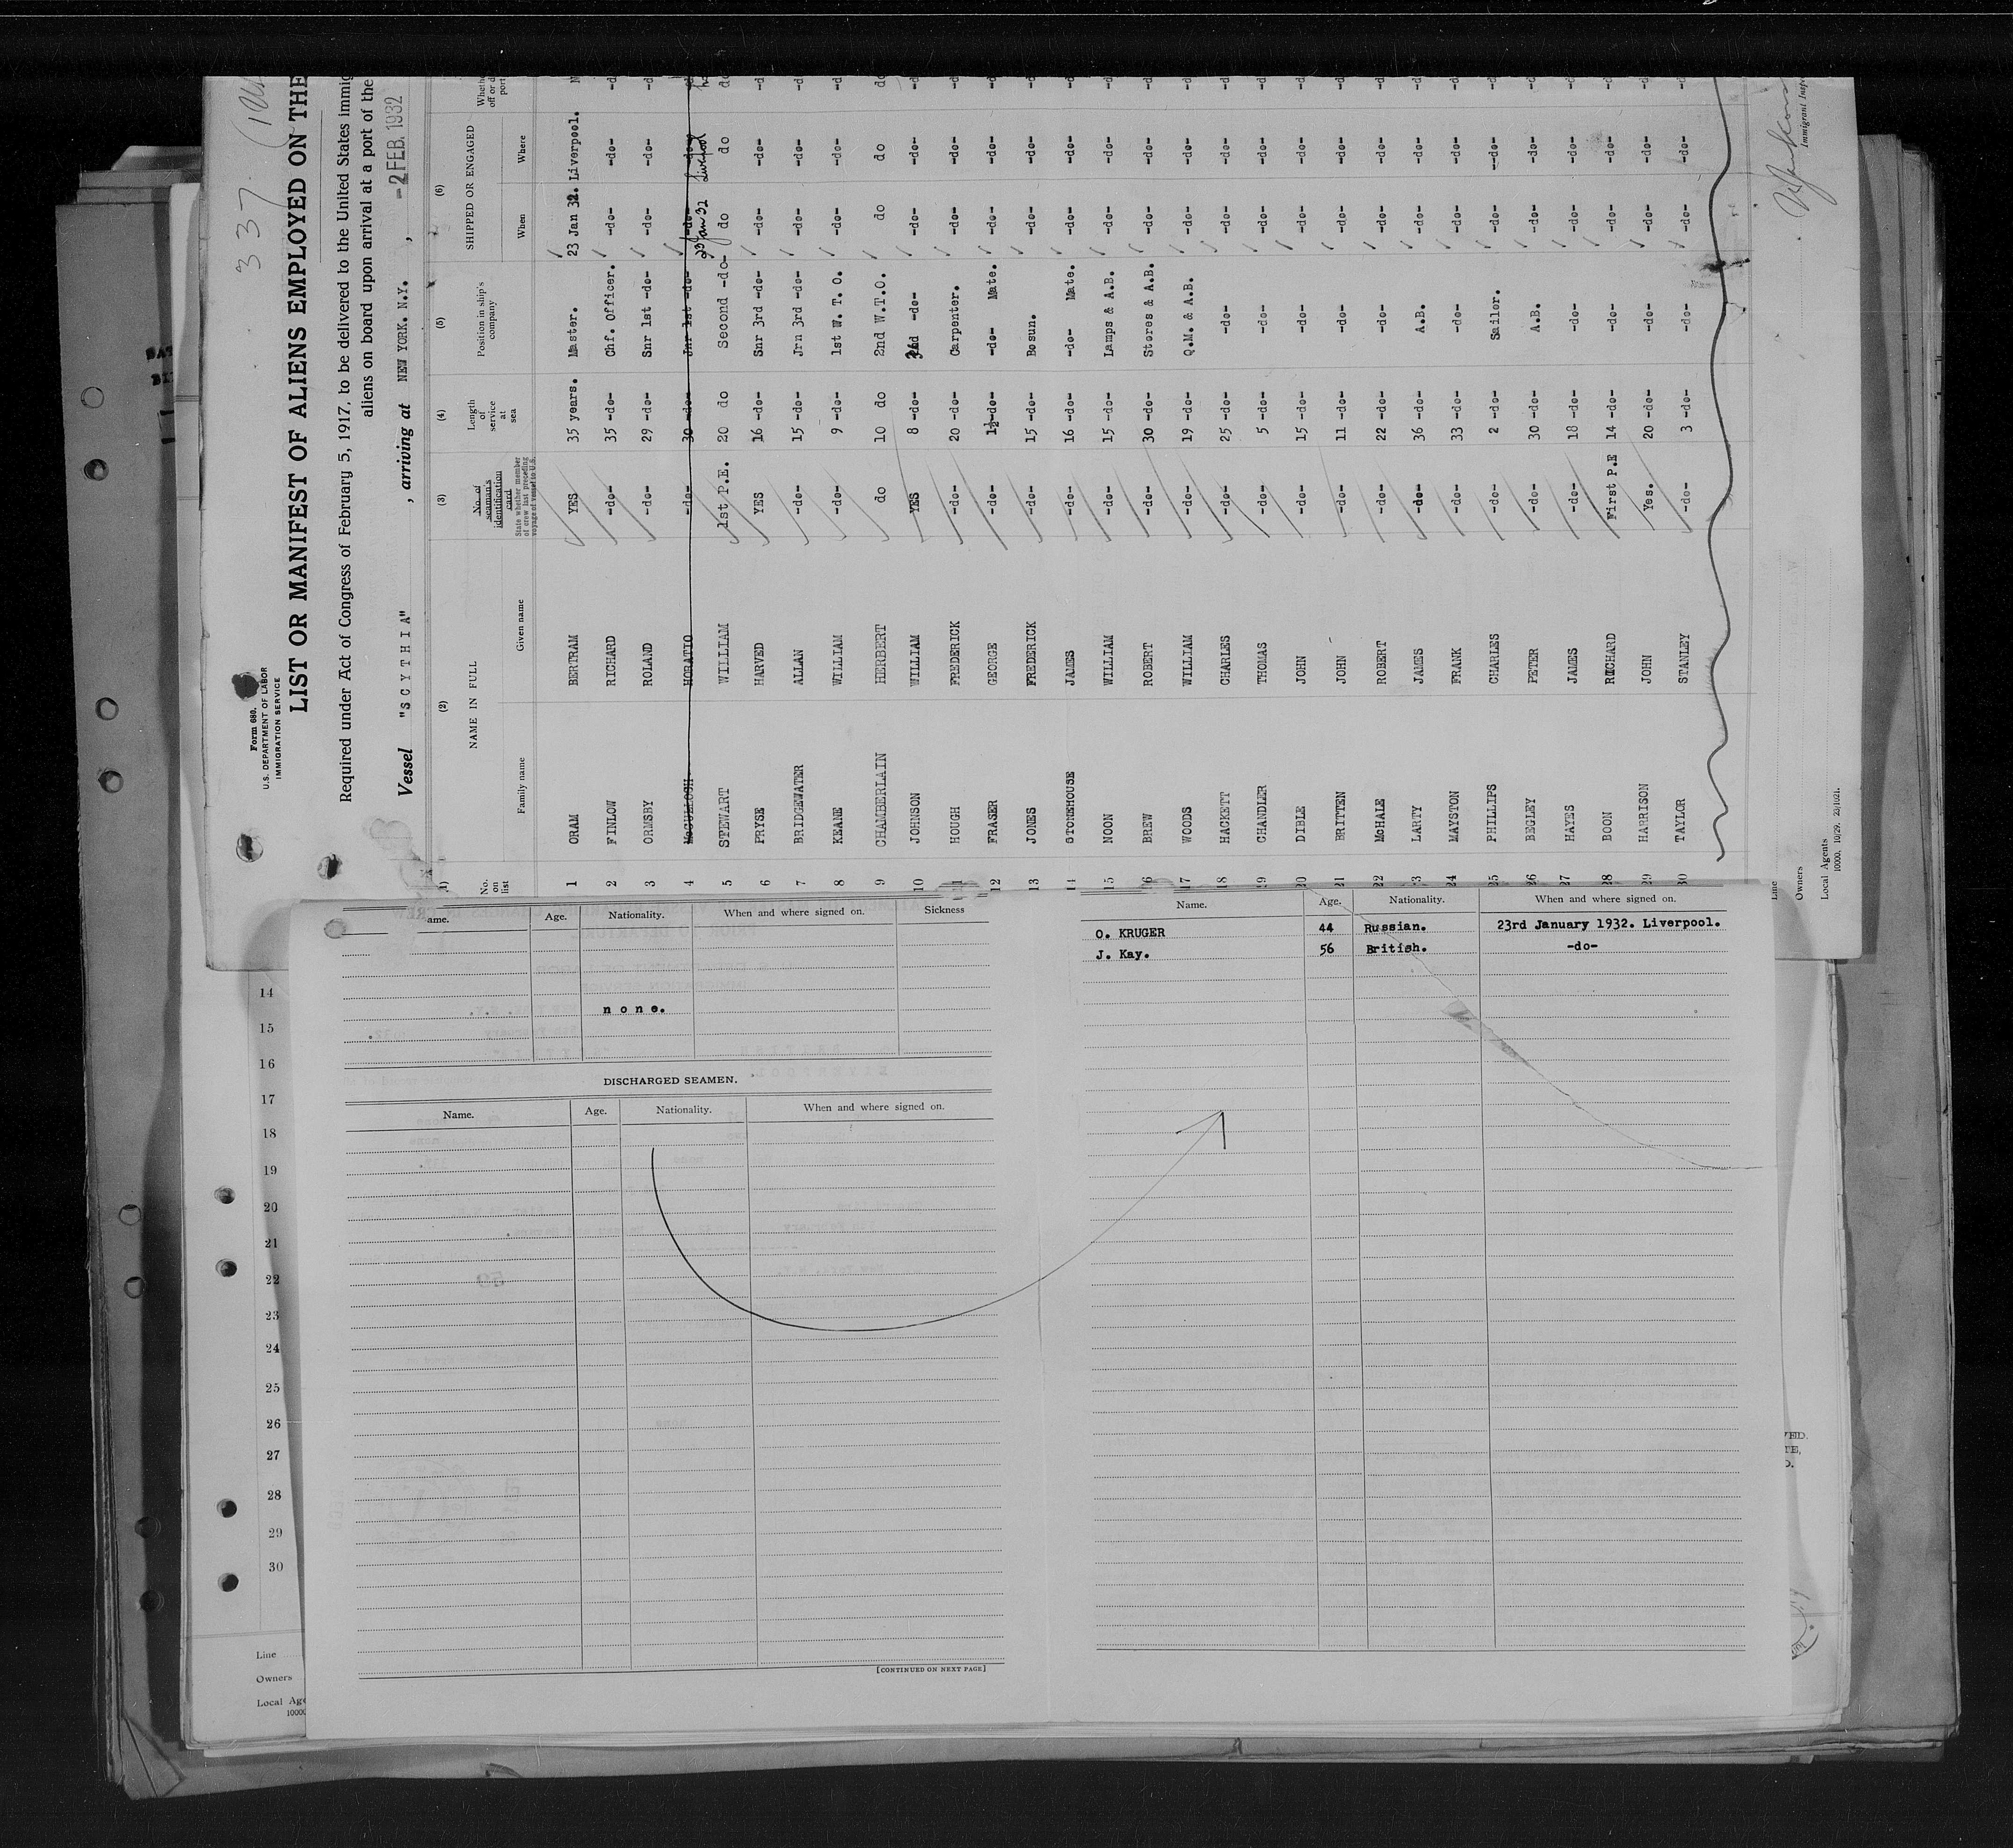 337
Form 680.
U.S. DEPARTMENT OF LABOR
IMMIGRATION SERVICE
LIST OR MANIFEST OF ALIENS EMPLOYED ON THE
Required under Act of Congress of February 5, 1917, to be delivered to the United States
aliens on board upon arrival at a port of the
Vessel "SCYTHIA" , arriving at NEW YORK. N.Y. , -2 FEB. 1932
(1) (2) (3) (4) (5) (6)
No. on list NAME IN FULL Family name Given name No. of seaman's identification card State whether member of crew last preceding voyage of vessel to U.S. Length of service at sea Position in ship's company SHIPPED OR ENGAGED When Where
1 ORAM BERTRAM YES 35 years. Master. 23 Jan 32. Liverpool.
2 FINLOW RICHARD -do- 35 -do- Chf. Officer. -do- -do-
3 ORMSBY ROLAND -do- 29 -do- Snr 1st -do- -do- -do-
4 McCULLOCH HORATIO -do- 30 -do- Jnr 1st -do- -do- -do-
23 Jan 32 Liverpool
5 STEWART WILLIAM 1st P.E. 20 do Second -do- do do
6 PRYSE HARVED YES 16 -do- Snr 3rd -do- -do- -do-
7 BRIDGEWATER ALLAN -do- 15 -do- Jrn 3rd -do- -do- -do-
8 KEANE WILLIAM -do- 9 -do- 1st W. T. O. -do- -do-
9 CHAMBERLAIN HERBERT do 10 do 2nd W.T.O. do do
10 JOHNSON WILLIAM YES 8 -do- 3rd -do- -do- -do-
11 HOUGH FREDERICK -do- 20 -do- Carpenter. -do- -do-
12 FRASER GEORGE -do- 1½-do- -do- Mate. -do- -do-
13 JONES FREDERICK -do- 15 -do- Bosun. -do- -do-
14 STONEHOUSE JAMES -do- 16 -do- -do- Mate. -do- -do-
15 NOON WILLIAM -do- 15 -do- Lamps & A.B. -do- -do-
16 BREW ROBERT -do- 30 -do- Stores & A.B. -do- -do-
17 WOODS WILLIAM -do- 19 -do- Q.M. & A.B. -do- -do-
18 HACKETT CHARLES -do- 25 -do- -do- -do- -do-
19 CHANDLER THOMAS -do- 5 -do- -do- -do- -do-
20 DIBLE JOHN -do- 15 -do- -do- -do- -do-
21 BRITTEN JOHN -do- 11 -do- -do- -do- -do-
22 McHALE ROBERT -do- 22 -do- -do- -do- -do-
23 LARTY JAMES -do- 36 -do- A.B. -do- -do-
24 MAYSTON FRANK -do- 33 -do- -do- -do- -do-
25 PHILLIPS CHARLES -do- 2 -do- Sailor. -do- --do-
26 BEGLEY PETER -do- 30 -do- A.B. -do- -do-
27 HAYES JAMES -do- 18 -do- -do- -do- -do-
28 BOON RICHARD First P.E 14 -do- -do- -do- -do-
29 HARRISON JOHN Yes. 20 -do- -do- -do- -do-
30 TAYLOR STANLEY -do- 3 -do- -do- -do- -do-
Line
Owners
Local Agents
10000. 10/29. 23/1021.
ame. Age. Nationality. When and where signed on. Sickness
none.
DISCHARGED SEAMEN.
Name. Age. Nationality. When and where signed on.
[CONTINUED ON NEXT PAGE]
Name. Age. Nationality. When and where signed on.
O. KRUGER 44 Russian. 23rd January 1932. Liverpool.
J. Kay. 56 British. -do-
14
15
16
17
18
19
20
21
22
23
24
25
26
27
28
29
30
Line
Owners
Local Age
10000